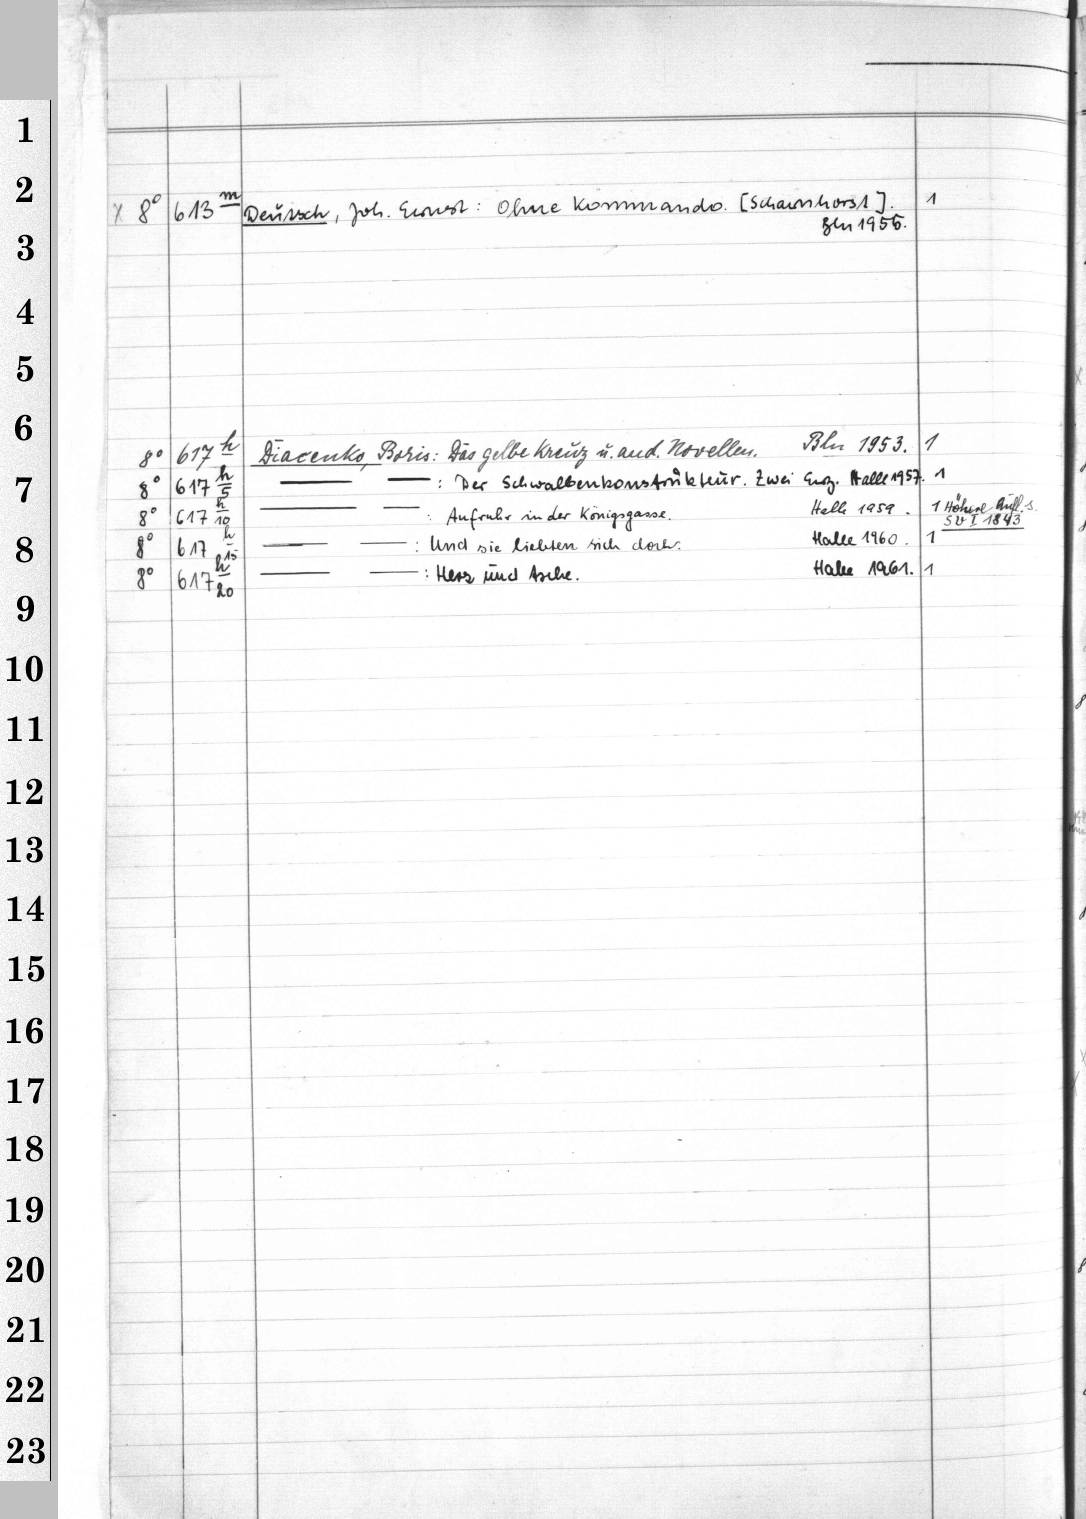 1
2
x 8° 613 m Deutsch, Joh. Ernst: Ohne Kommando. [Scharnhorst]. 1
Bln 1955.
3
4
5
6
8° 617 h Diacenko, Boris: Das gelbe Kreuz u. and. Novellen. Bln 1953. 1
7
8° 617 h/5 — — : Der Schwalbenkonstrukteur. Zwei Erz. Halle 1957. 1
8° 617 h/10 — — : Aufruhr in der Königsgasse. Halle 1959. 1 Höhere Aufl. s.
SV I 1843
8
8° 617 h/15 — — : Und sie liebten sich doch. Halle 1960. 1
8° 617 h/20 — — : Herz und Asche. Halle 1961. 1
9
10
11
12
13
14
15
16
17
18
19
20
21
22
23